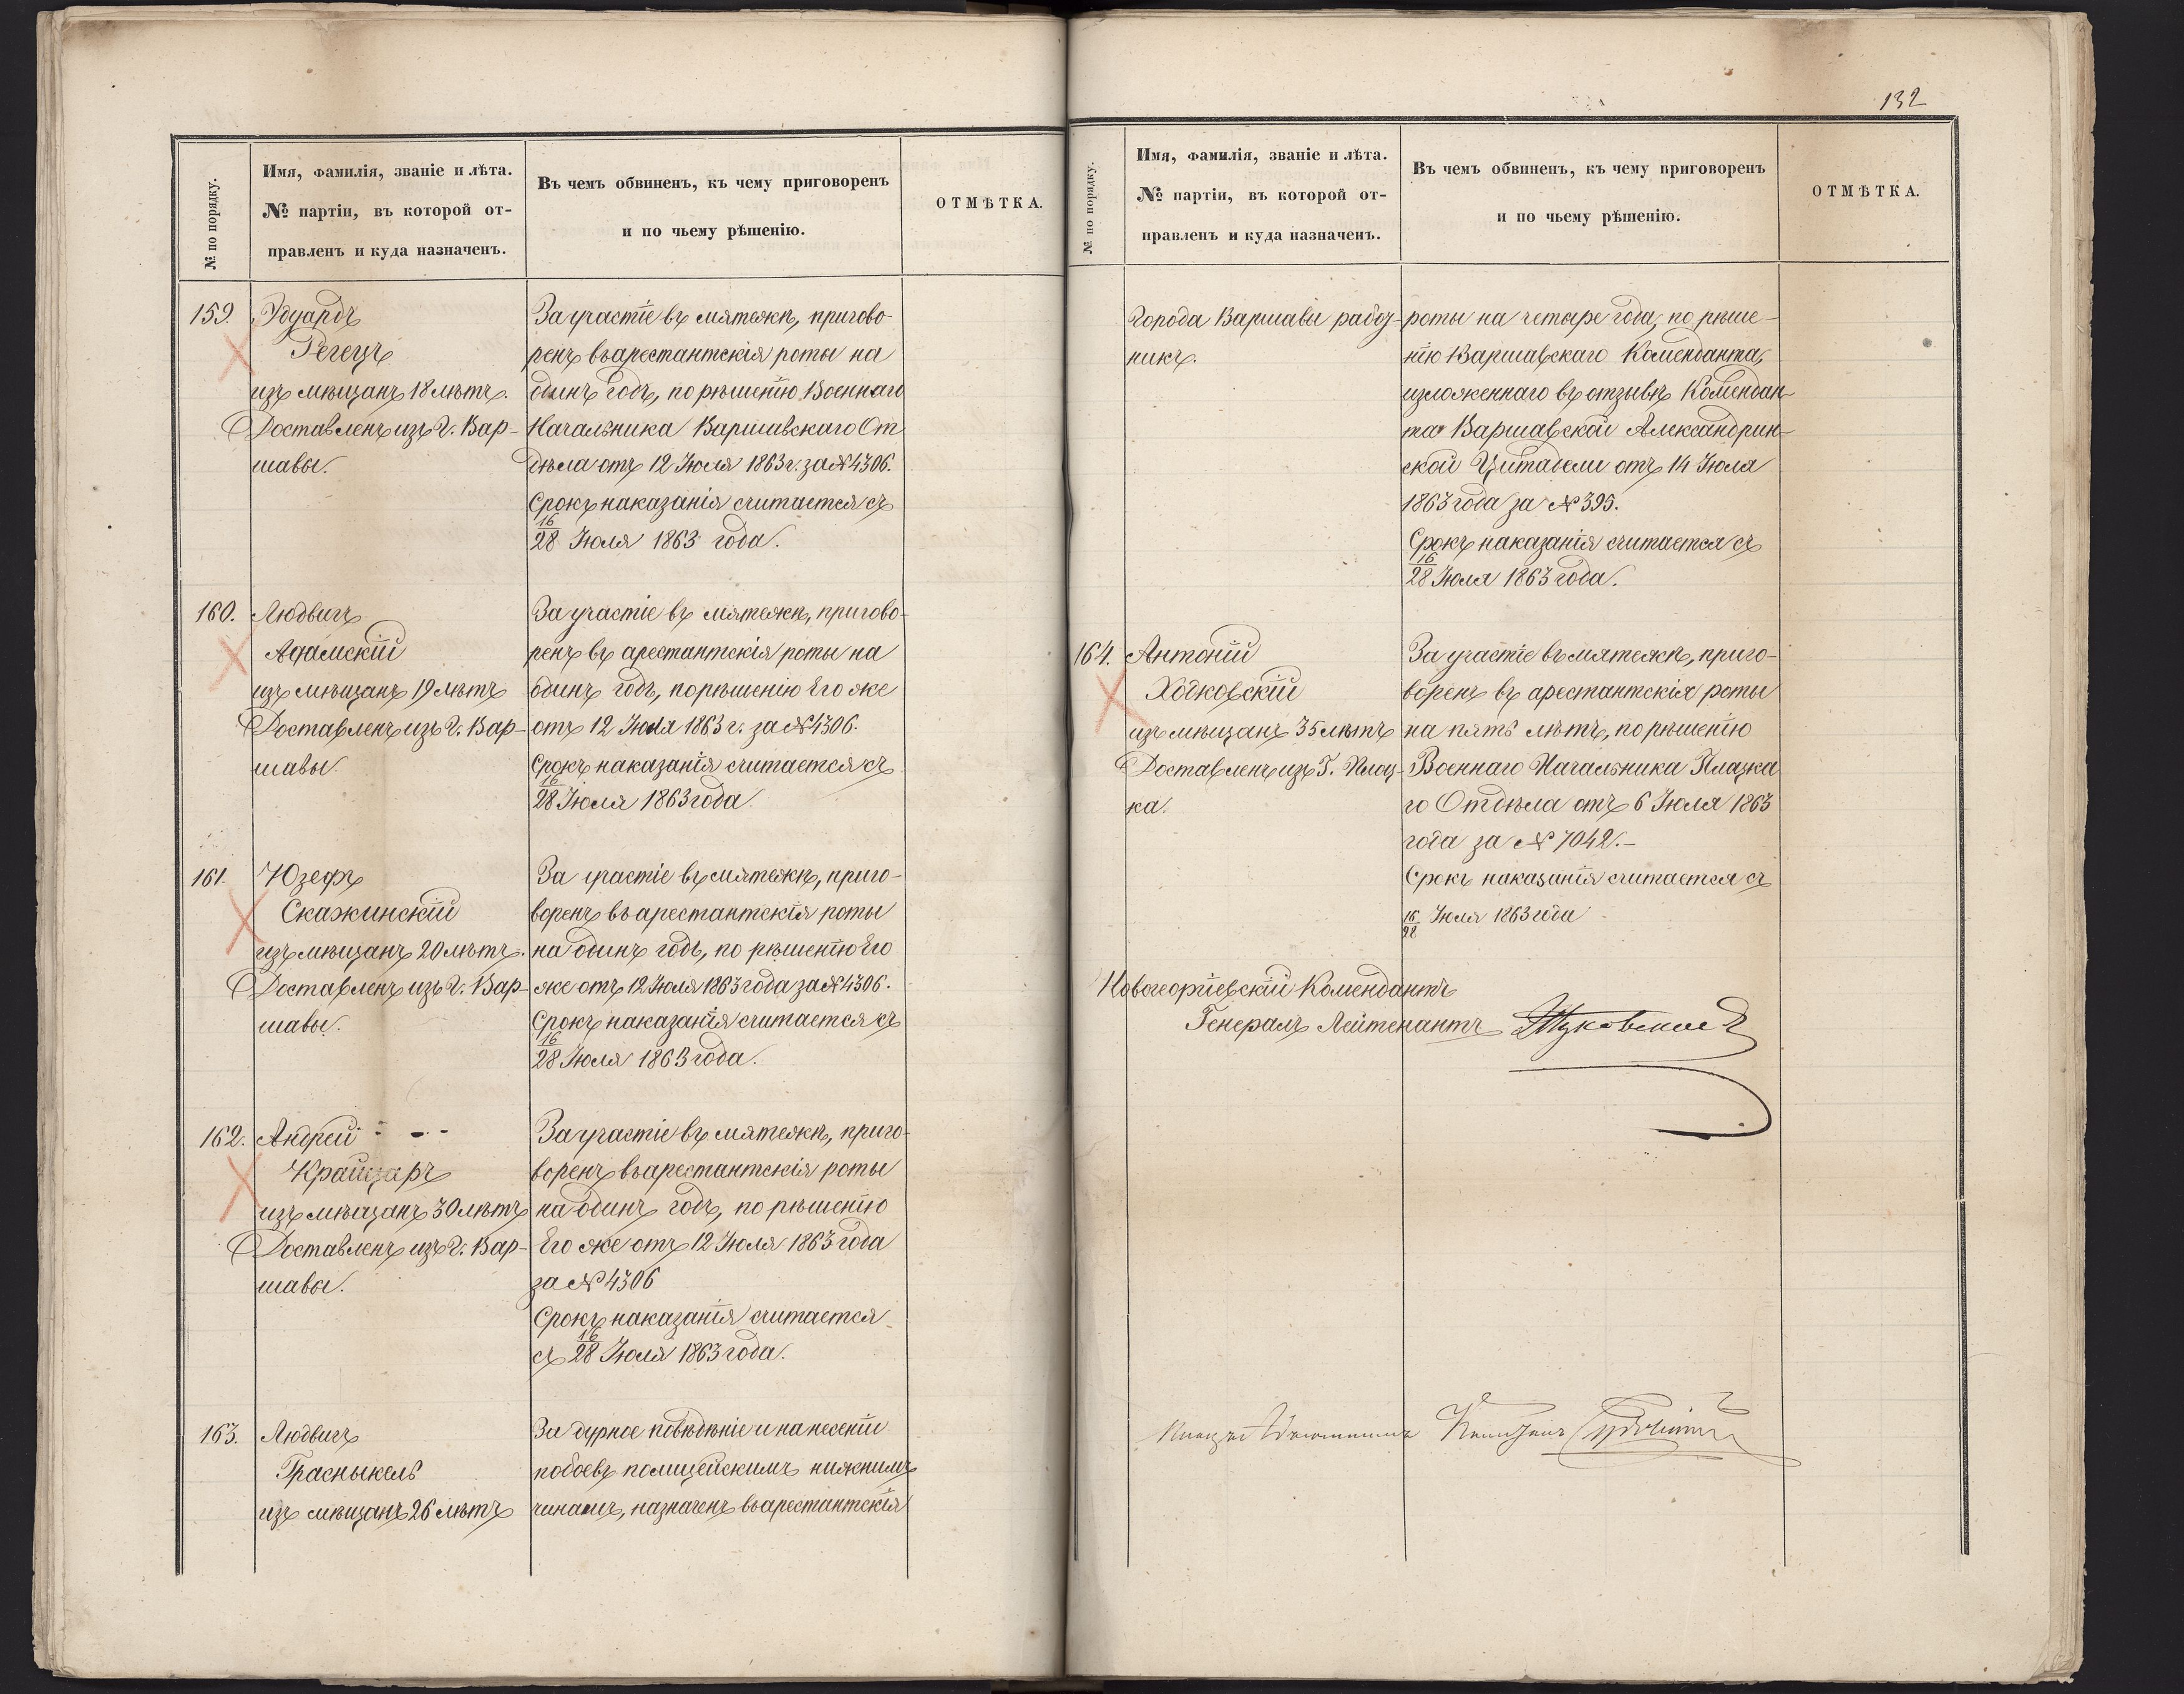 № по порядку.
Имя, фамилія, званіе и лѣта.
№ партіи, въ которой от-
правленъ и куда назначенъ.
Въ чемъ обвиненъ, къ чему приговоренъ
и по чьему рѣшенію.
ОТМѢТКА.
159.
Эдуардъ
Регецъ
изъ мѣщанъ 18 лѣтъ.
Доставленъ изъ г. Вар-
шавы.
За участіе въ мятежѣ, пригово-
ренъ въ арестантскія роты на
одинъ годъ, по рѣшенію Военнаго
Начальника Варшавскаго От
дѣла отъ 12 Іюля 1863 г. за № 4306.
Срокъ наказанія считается съ
16/28 Іюля 1863 года.
160.
Людвигъ
Адамскій
изъ мѣщанъ 19 лѣтъ
Доставленъ изъ г. Вар-
шавы.
За участіе въ мятежѣ, пригово-
ренъ въ арестантскія роты на
одинъ годъ, по рѣшенію Его же
отъ 12 Іюля 1863 г. за № 4306.
Срокъ наказанія считается съ
16/28 Іюля 1863 года.
161.
Юзефъ
Скажинскій
изъ мѣщанъ 20 лѣтъ.
Доставленъ изъ г. Вар-
шавы.
За участіе въ мятежѣ, приго-
воренъ въ арестантскія роты
на одинъ годъ, по рѣшенію Его
же отъ 12 Іюля 1863 года за № 4306.
Срокъ наказанія считается съ
16/28 Іюля 1863 года.
162.
Андрей
Крайцаръ
изъ мѣщанъ 30 лѣтъ
Доставленъ изъ г. Вар-
шавы.
За участіе въ мятежѣ, приго-
воренъ въ арестантскія роты
на одинъ годъ, по рѣшенію
Его же отъ 12 Іюля 1863 года
за № 4306
Срокъ наказанія считается
съ 16/28 Іюля 1863 года.
163.
Людвигъ
Грасныкель
изъ мѣщанъ 26 лѣтъ
За дурное повѣдѣніе и нанесеніи
побоевъ полицейскимъ нижнимъ
чинамъ, назначенъ въ арестантскія
132
№ по порядку.
Имя, фамилія, званіе и лѣта.
№ партіи, въ которой от-
правленъ и куда назначенъ.
Въ чемъ обвиненъ, къ чему приговоренъ
и по чьему рѣшенію.
ОТМѢТКА.
Города Варшавы рабоч-
никъ.
роты на четыре года, по рѣше-
нію Варшавскаго Коменданта,
изложеннаго въ отзывѣ Комендан-
та Варшавской Александрин-
ской Цитадели отъ 14 Іюля
1863 года за № 395.
Срокъ наказанія считается съ
16/28 Іюля 1863 года.
164.
Антоній
Ходковскій
изъ мѣщанъ 35 лѣтъ
Доставленъ изъ Г. Плоц-
ка.
За участіе въ мятежѣ, приго-
воренъ въ арестантскія роты
на пять лѣтъ, по рѣшенію
Военнаго Начальника Плазка
го Отдѣла отъ 6 Іюля 1863
года за № 7042.-
Срокъ наказанія считается съ
16/28 Іюля 1863 года
Новогеоргіевскій Комендантъ
Генералъ Лейтенантъ Жуковскій